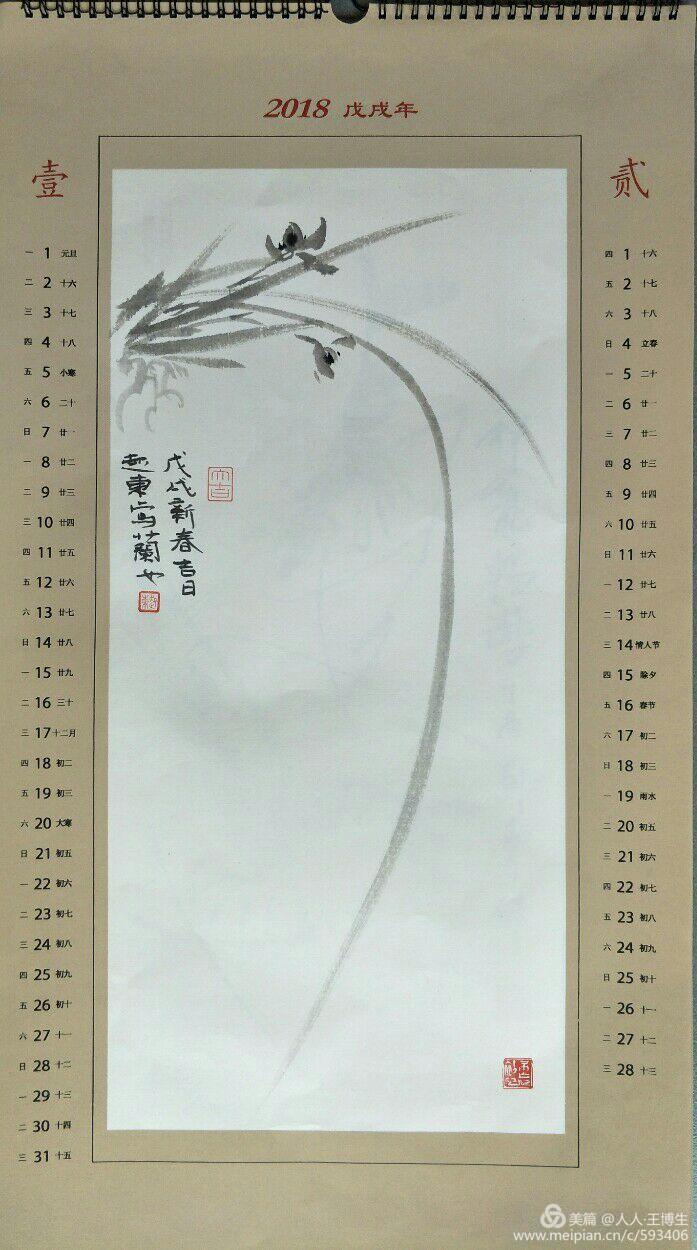 2018 戊戌年
壹
一 1 元旦
二 2 十六
三 3 十七
四 4 十八
五 5 小寒
六 6 二十
日 7 廿一
一 8 廿二
二 9 廿三
三 10 廿四
四 11 廿五
五 12 廿六
六 13 廿七
日 14 廿八
一 15 廿九
二 16 三十
三 17 十二月
四 18 初二
五 19 初三
六 20 大寒
日 21 初五
一 22 初六
二 23 初七
三 24 初八
四 25 初九
五 26 初十
六 27 十一
日 28 十二
一 29 十三
二 30 十四
三 31 十五
戊戌新春吉日
赵東写蘭也
大吉
贰
四 1 十六
五 2 十七
六 3 十八
日 4 立春
一 5 二十
二 6 廿一
三 7 廿二
四 8 廿三
五 9 廿四
六 10 廿五
日 11 廿六
一 12 廿七
二 13 廿八
三 14 情人节
四 15 除夕
五 16 春节
六 17 初二
日 18 初三
一 19 雨水
二 20 初五
三 21 初六
四 22 初七
五 23 初八
六 24 初九
日 25 初十
一 26 十一
二 27 十二
三 28 十三
美篇 @人人·王博生
www.meipian.cn/c/593406